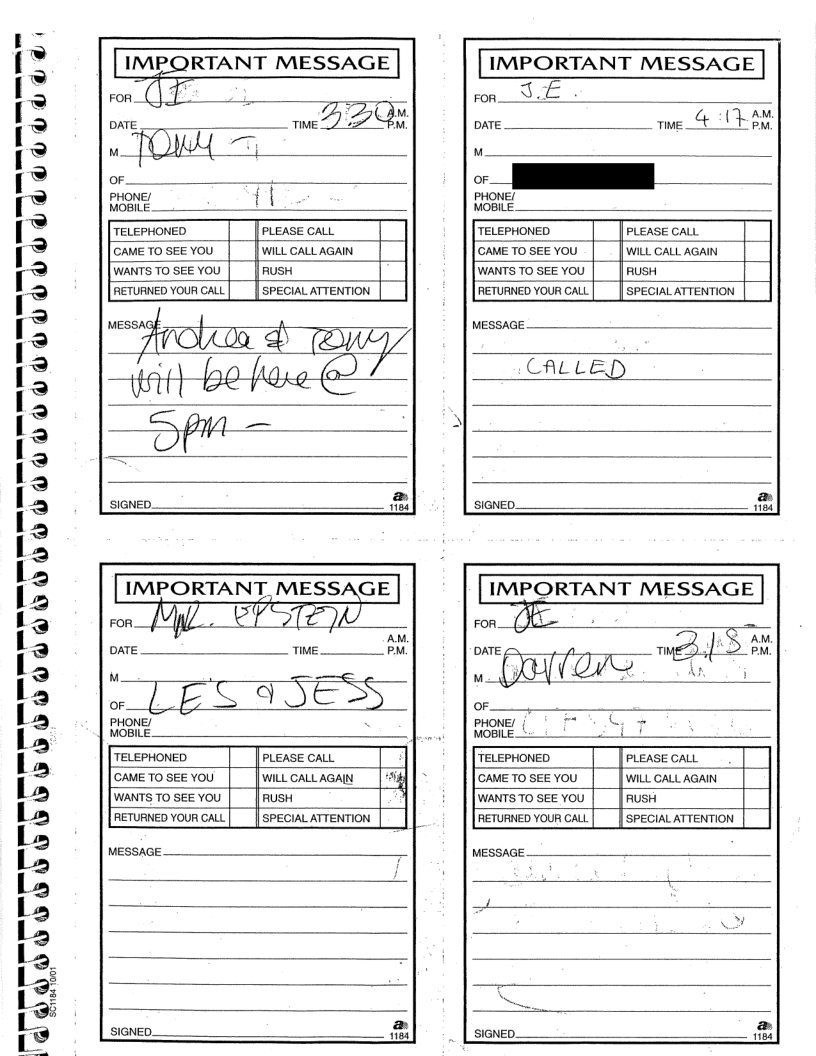 IMPORTANT MESSAGE
FOR JE
DATE TIME 3:30 A.M. P.M.
M Tony
OF
PHONE/
MOBILE
TELEPHONED PLEASE CALL
CAME TO SEE YOU WILL CALL AGAIN
WANTS TO SEE YOU RUSH
RETURNED YOUR CALL SPECIAL ATTENTION
MESSAGE
Andrea & Tony
will be here @
5pm -
SIGNED
a
1184
IMPORTANT MESSAGE
FOR J.E.
DATE TIME 4:17 A.M. P.M.
M
OF
PHONE/
MOBILE
TELEPHONED PLEASE CALL
CAME TO SEE YOU WILL CALL AGAIN
WANTS TO SEE YOU RUSH
RETURNED YOUR CALL SPECIAL ATTENTION
MESSAGE
CALLED
SIGNED
a
1184
IMPORTANT MESSAGE
FOR MR. EPSTEIN
DATE TIME A.M. P.M.
M
OF LES & JESS
PHONE/
MOBILE
TELEPHONED PLEASE CALL
CAME TO SEE YOU WILL CALL AGAIN
WANTS TO SEE YOU RUSH
RETURNED YOUR CALL SPECIAL ATTENTION
MESSAGE
SIGNED
a
1184
IMPORTANT MESSAGE
FOR JE
DATE TIME 3:18 A.M. P.M.
M Darren
OF
PHONE/
MOBILE
TELEPHONED PLEASE CALL
CAME TO SEE YOU WILL CALL AGAIN
WANTS TO SEE YOU RUSH
RETURNED YOUR CALL SPECIAL ATTENTION
MESSAGE
SIGNED
a
1184
SC1184 10/01